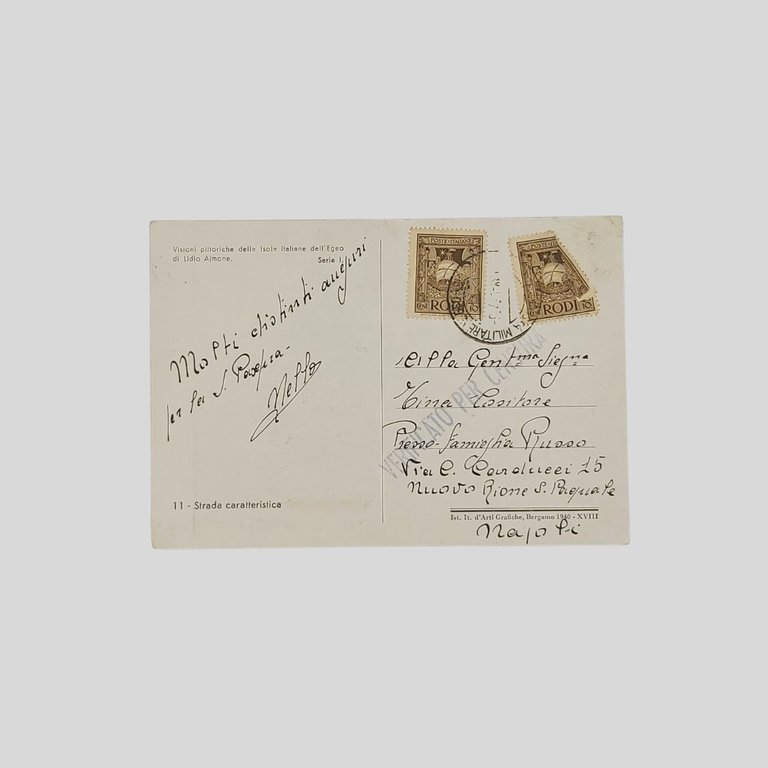 Visioni pittoriche delle Isole Italiane dell'Egeo
di Lidio Ajmone. Serie I.
Molti distinti auguri
per la S. Pasqua-
Nello
11 - Strada caratteristica
POSTE·ITALIANE
RODI
CENT 10
POSTE·ITALIANE
RODI
10
POSTA MILITARE
VERIFICATO PER CENSURA
Alla Gent.ma Sig.na
Tina
Presso-famiglia Russo
Via C. Carducci 15
Nuovo Rione S. Pasquale
Ist. It. d'Arti Grafiche, Bergamo 1940 - XVIII
Napoli